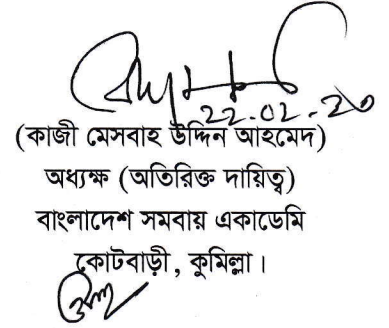 22.02.20
(কাজী মেসবাহ উদ্দিন আহমেদ)
অধ্যক্ষ (অতিরিক্ত দায়িত্ব)
বাংলাদেশ সমবায় একাডেমি
কোটবাড়ী, কুমিল্লা।